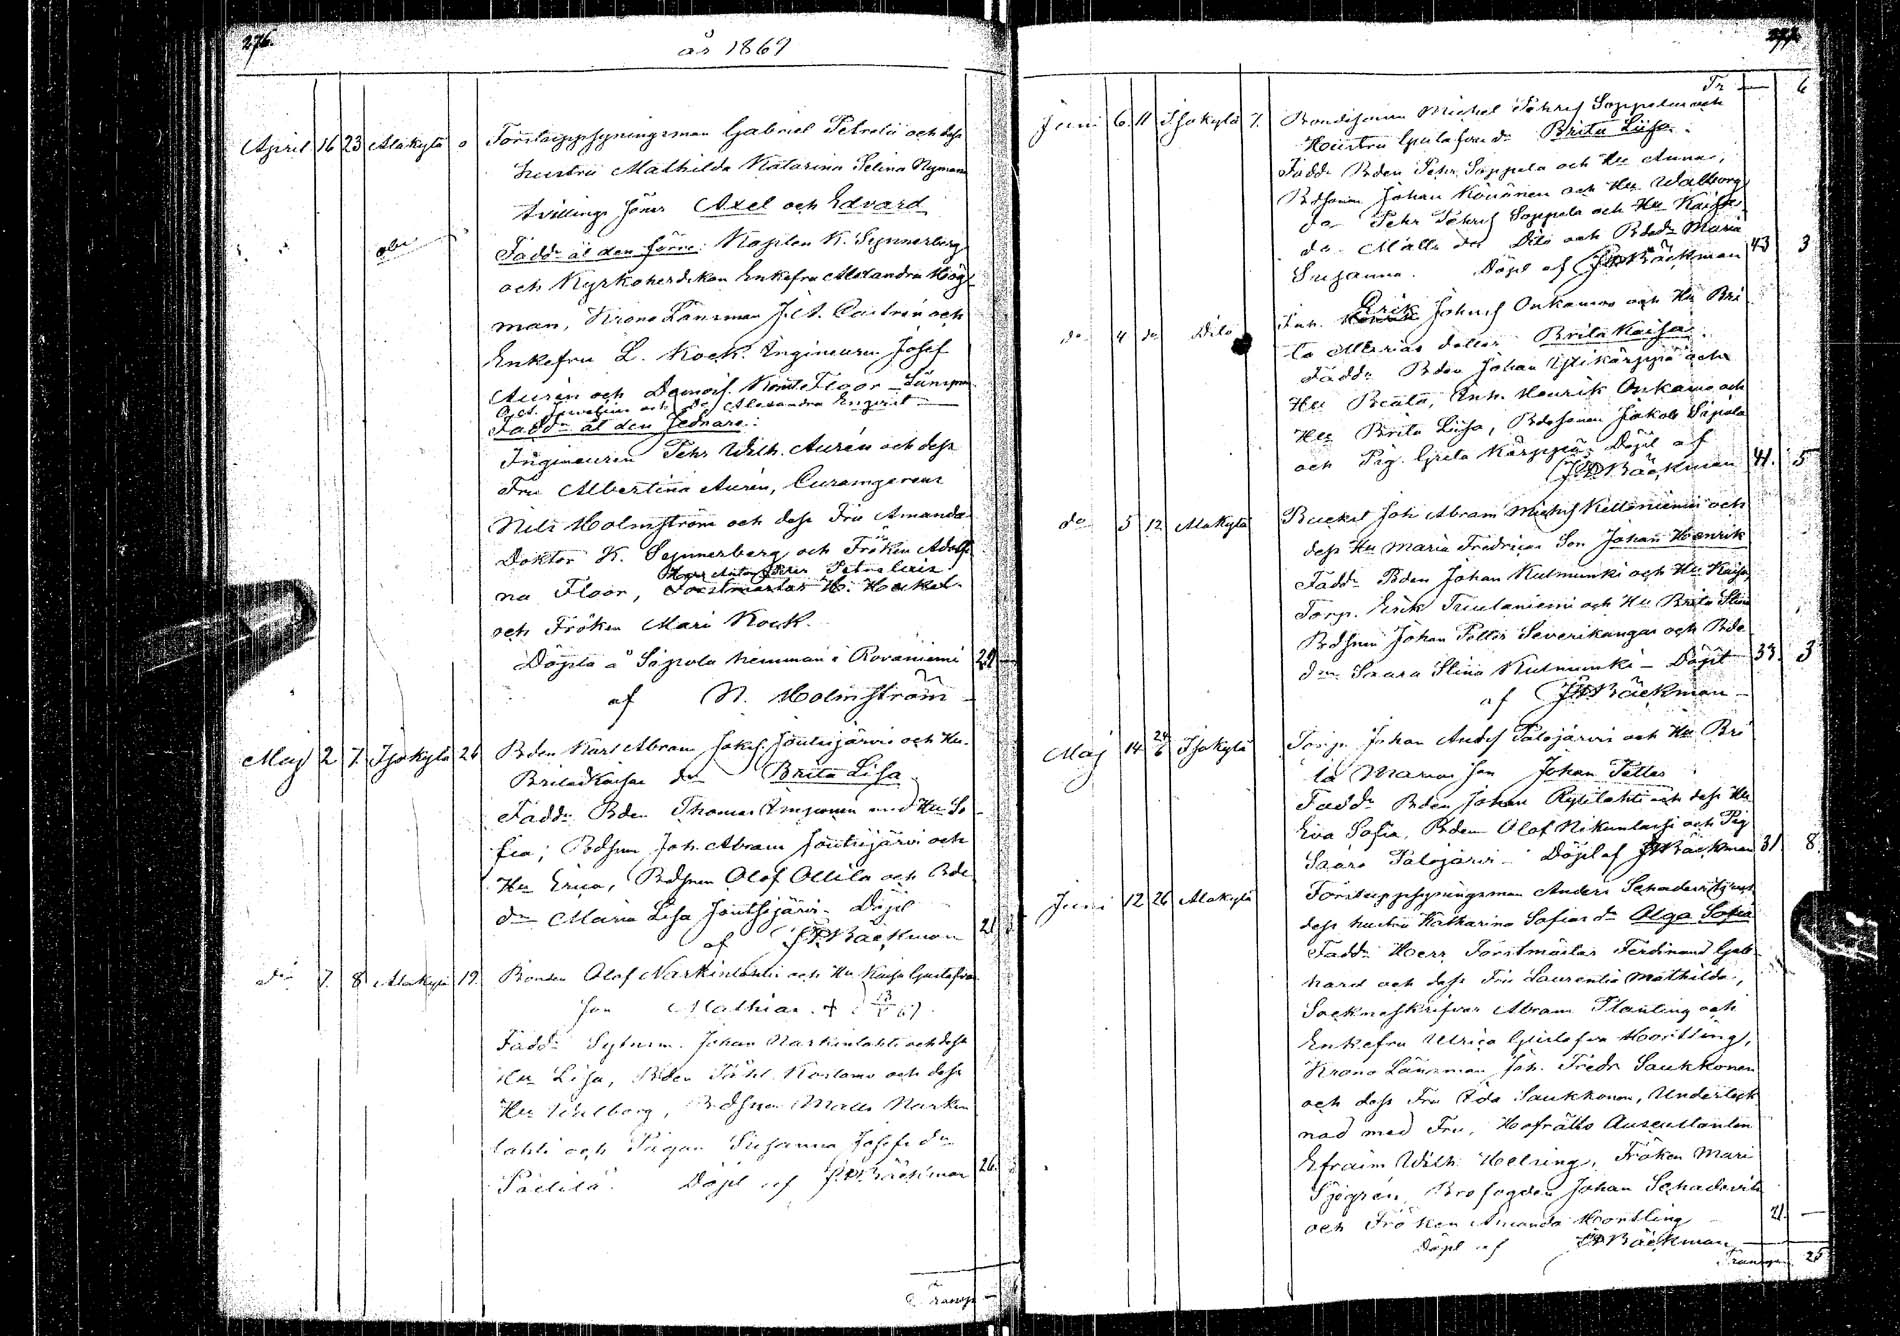 276.
år 1869
April 16 23 Alakylä o Forstuppsyningsman Gabriel och dess
hustru Mathilda Katarina Selina Nyman
tvillings söner Axel och Edvard
Fadd: åt den förre: Kaplan K. Synnerberg
och Kyrkoherdskan Enkefru Alexandra Hög-
man, Krono Länsman J. A. Castrén och
Enkefru L. Kock. Ingineuren Josef
Aurén och Demois. Floor – Länsman
och Alexandra Engvist
Fadd: åt den sednare:
Ingineuren Pehr Wilh. Aurén och dess
Fru Albertina Aurén,
Nils Holmström och dess Fru Amanda
Doktor K. Synnerberg och Fröken Adolfi
Herr
na Floor, Forstmästar H.
och Fröken Mari Kock.
Döpta å Säpola hemman i Rovaniemi 29 –
af N. Holmström –
Maj 2 7 Isokylä 26 Bden Karl Abram Jouttijärvi och Hu
Brita Kaisas dr Brita Lisa
Fadd: Bden Thomas med Hu So-
fia; Bdsonen Joh. Abram Jouttijärvi och
Hu Erica, Bdsonen Olof Ollila och Bde
dn Maria Lisa Jouttijärvi. Döpt
af J. P. Bäckman 21
do 7. 8 Alakylä 19. Bonden Olof Narkinlahti och Hu Kaisa Gustafva
Son Mathias. +
Fadd: Johan Narkinlahti och dess
Hu Lisa, Bden Kostamo och dess
Hu Walborg, Bdsonen Matts Narkin
lahti och Pigan Susanna Josefs dn
Döpt af J. P. Bäckman 26.
Transp –
277.
Tr – 6
Juni 6. 11 Isokylä 7. Bondesonen Michel Soppela och
Hustru Gustafvas dr Brita Liisa.
Fadd: Bden Pehr Soppela och Hu Anna,
Bdsonen Johan Könönen och Hu Walborg
do Pehr Soppela och Hu Kaisa
do Matts do Dito och Bdedn Maria
Susanna. Döpt af J P Bäckman 43 3
do 4 do Dito Inh. Erik Johns Onkamo och Hu Bri
ta Marias dotter Brita Kaisa
Fadd: Bden Johan Ylikärppä och
Hu Beata, Inh. Henrik Onkamo och
Hu Brita Liisa, Bdsonen Jakob Säpola
och Pig. Greta Kärppä. Döpt af
J P Bäckman 41. 5
do 5 12 Alakylä Joh Abram Michs Kettoniemi och
dess Hu Maria Fredricas Son Johan Henrik
Fadd: Bden Johan Kulmunki och Hu Kaisa,
Torp. Erik och Hu Brita Stina
Bdsonen Johan Petter Severikangas och Bde
dn Saara Stina Kulmunki – Döpt 33. 3
af J P Bäckman –
Maj 14 24/6 Isokylä Torp. Johan Anders Palojärvi och Hu Bri
ta Marias Son Johan Petter
Fadd: Bden Johan Kyllilahti och dess Hu
Eva Sofia, Bden Olof och Pig
Saara Palojärvi – Döpt af J P Bäckman 31 8.
Juni 12 26 Alakylä Forstuppsyningsman Anders Schadevitz och
dess hustru Katharina Sofias dr Olga Sofia
Fadd: Herr Forstmästar Ferdinand Geb-
hard och dess Fru Laurentia Mathilda,
Sockneskrifvar Abram Planting och
Enkefru Ulrica Gustafva Hortling,
Krono Länsman Joh. Fredr Saukkonen
och dess Fru Ida Saukkonen, Underteck
nad med Fru, Hofrätts Auscultanten
Efraim Wilh. Helsing, Fröken Mari
Sjögrén, Brofogden Johan Schadevitz
och Fröken Amanda Hortling – 21. –
Döpt af J P Bäckman
Transp. 25